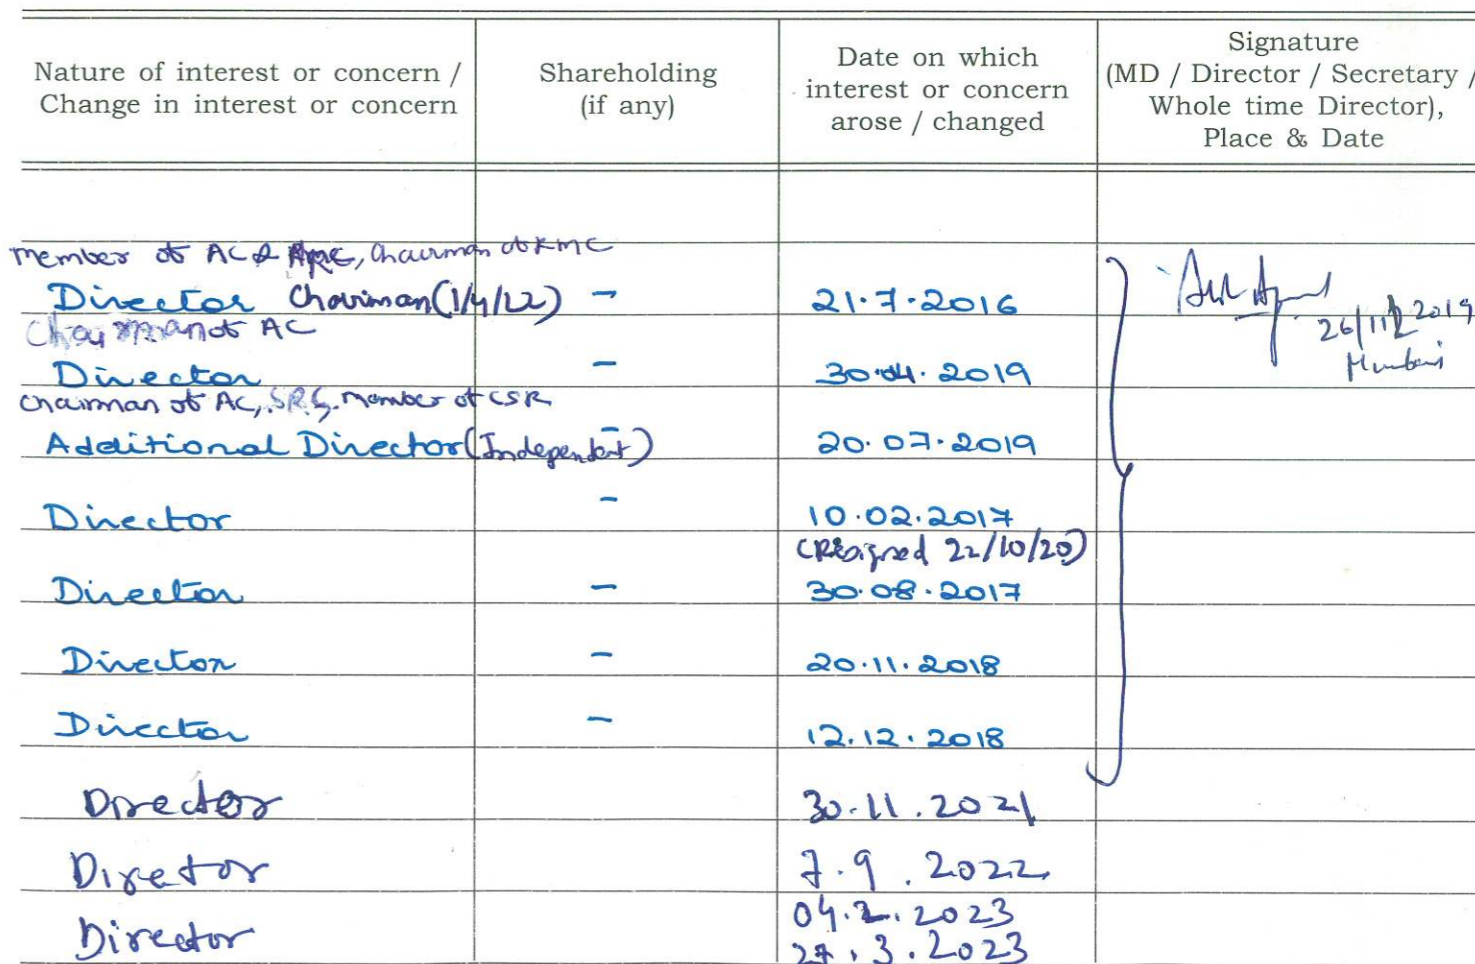 Nature of interest or concern / Change in interest or concern
Shareholding (if any)
Date on which interest or concern arose / changed
Signature (MD / Director / Secretary / Whole time Director), Place & Date
member of AC & Chairman of
Director Chairman (1/4/22) - 21.7.2016
26/11/2019
Mumbai
Chairman of AC
Director - 30.04.2019
Chairman of AC, Member of CSR
Additional Director (Independent) - 20.07.2019
Director - 10.02.2017
(Resigned 22/10/20)
Director - 30.08.2017
Director - 20.11.2018
Director - 12.12.2018
Director 30.11.2021
Director 7.9.2022
04.2.2023
Director 27.3.2023